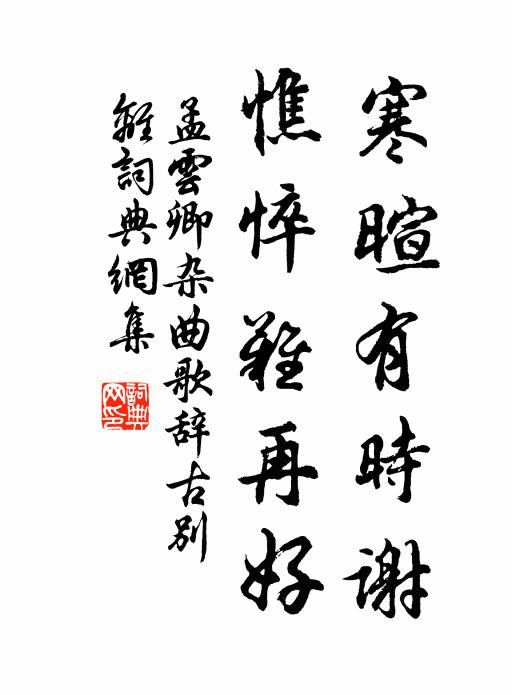 寒暄有時謝
憔悴難再好
孟雲卿杂曲歌辞古别
離詞典網集
詞典网印